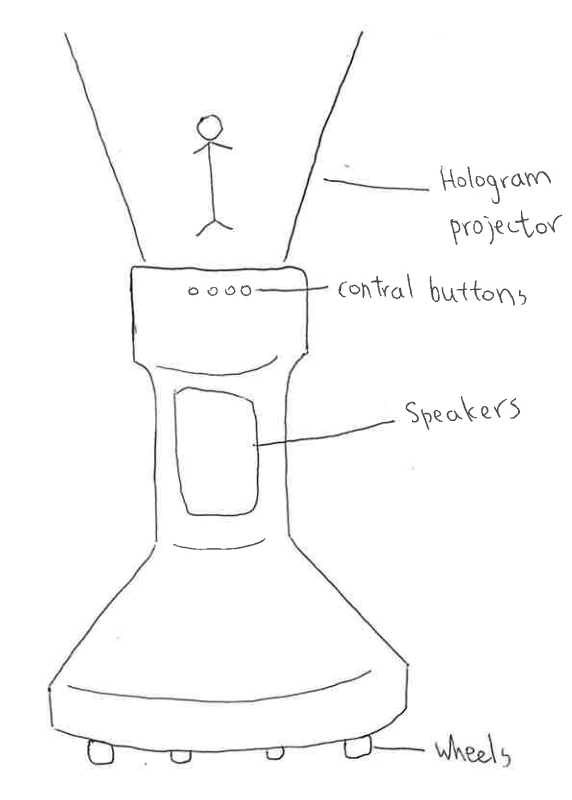 Hologram
projector
contral buttons
Speakers
wheels